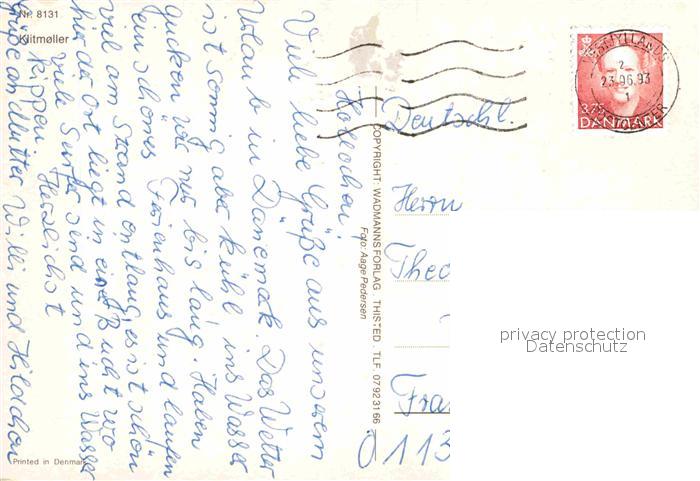 Nr. 8131
Klitmøller
Viele liebe Grüße aus unserem
Urlaub in Dänemak. Das Wetter
ist sonnig aber kühl ins Wasser
gucken wir nur bis lang. Haben
ein schönes Ferienhaus und laufen
viel am Strand entlang, es ist schön
hier der Ort liegt in einer Bucht wo
viele Surfer sind und ins Wasser
kippen. Herzlichst
Grüße an Mutter Willi und Hildchen
Printed in Denmark
COPYRIGHT: WADMANNS FORLAG THISTED . TLF. 07923166
Foto: Aage Pedersen
VESTJYLLANDS
2
23.06.93
1
3.75
DANMARK
Deutschl.
Herrn
Theo
Fra
0113
privacy protection
Datenschutz